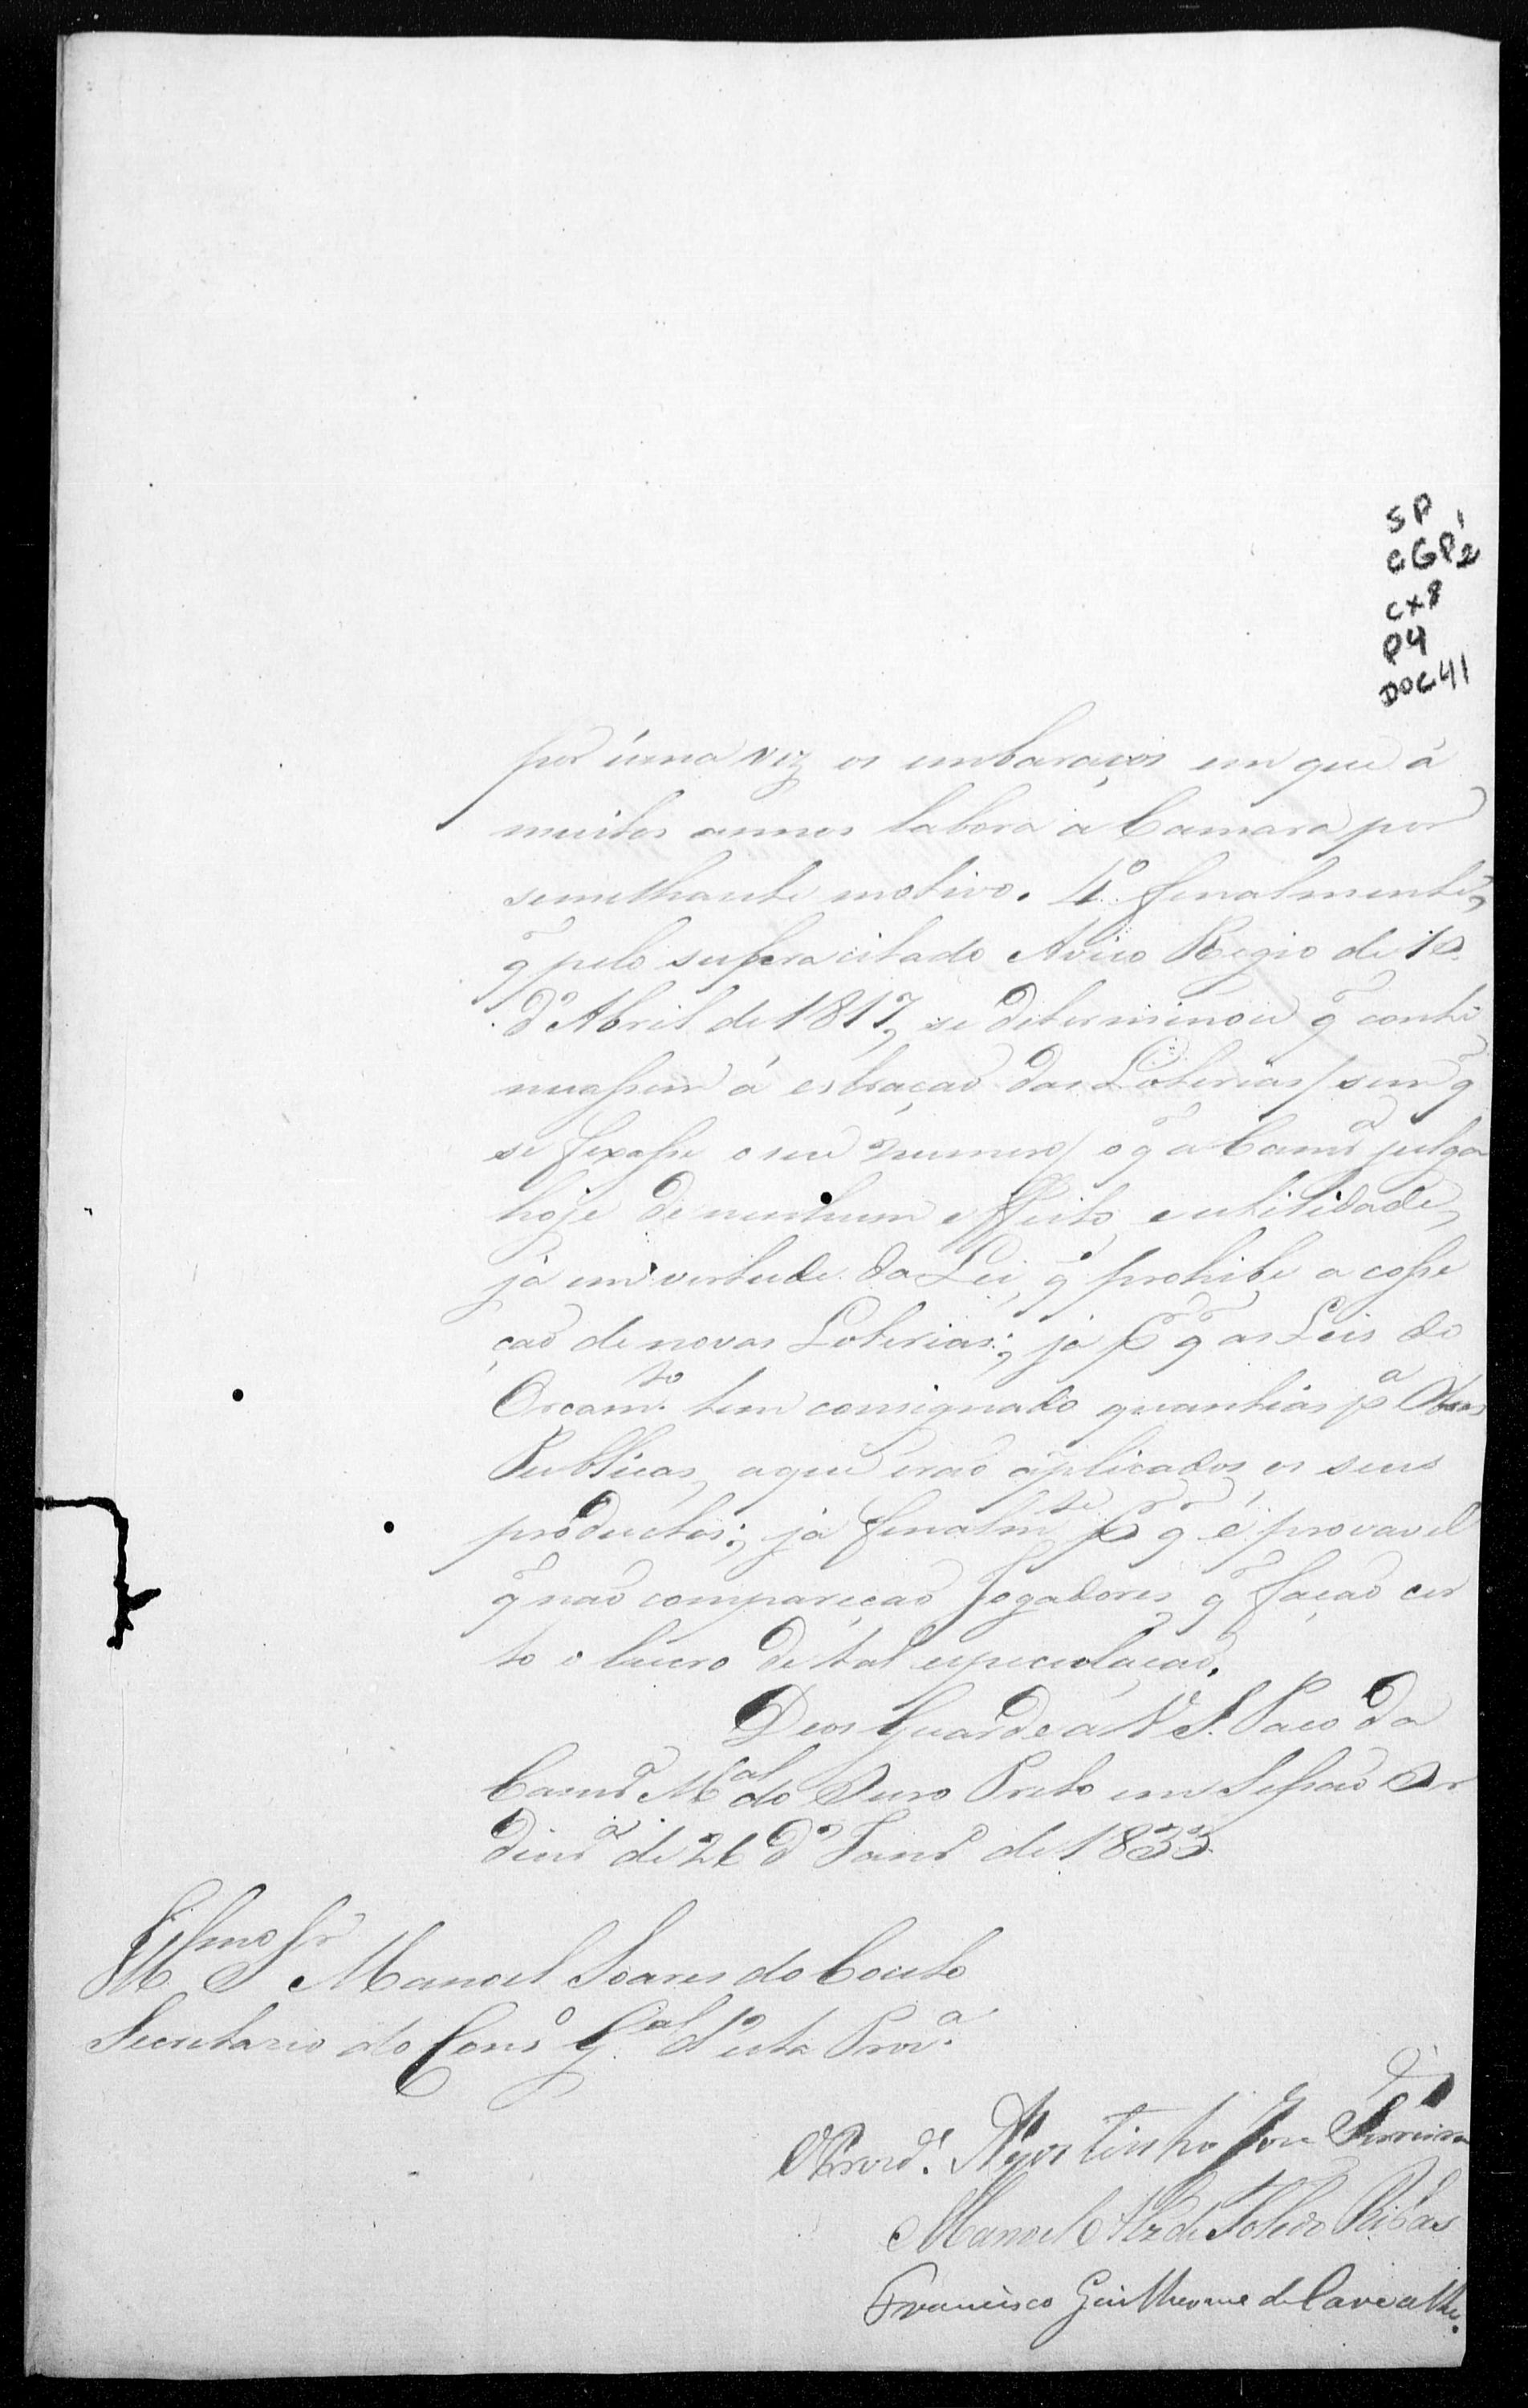 SP 1
CGP 2
CX 8
P4
DOC 41
por úma vez os embaraços em que á
muitos annos labora a Camara por
semelhante motivo. 4º finalmente,
q̃ pelo supracitado Aviso Regio de 10
d'Abril de 1817, se determinou q̃ conti
nuassem á extração das Loterias / sem q̃
se fixasse o seu numero / o q̃ a Camrª julga
hoje de nenhum effeito e utilidade,
já em virtude da Lei, q̃ prohibe a conse
ção de novas Loterias; já pr q̃ as Leis do
Orcamto tem consignado quantias pª Obras
Publicas, a que erão aplicados os seus
productos; já finalmte pr q̃ é provavel
q̃ não compareção Jogadores q̃ fação cer
to o lucro de tal especulação.
Deos Guarde a V. S. Paço da
Camrª Mal do Ouro Preto em Sessão Or
dinrª de 26 d'Janrº de 1833
Illmo Sr
M. S. Manoel Soares do Couto
Secretario do Consº Gal d'esta Provª
Agostinho José Ferreira
Manoel Alz de Toledo Ribas
Francisco Guilherme de Carvalho.